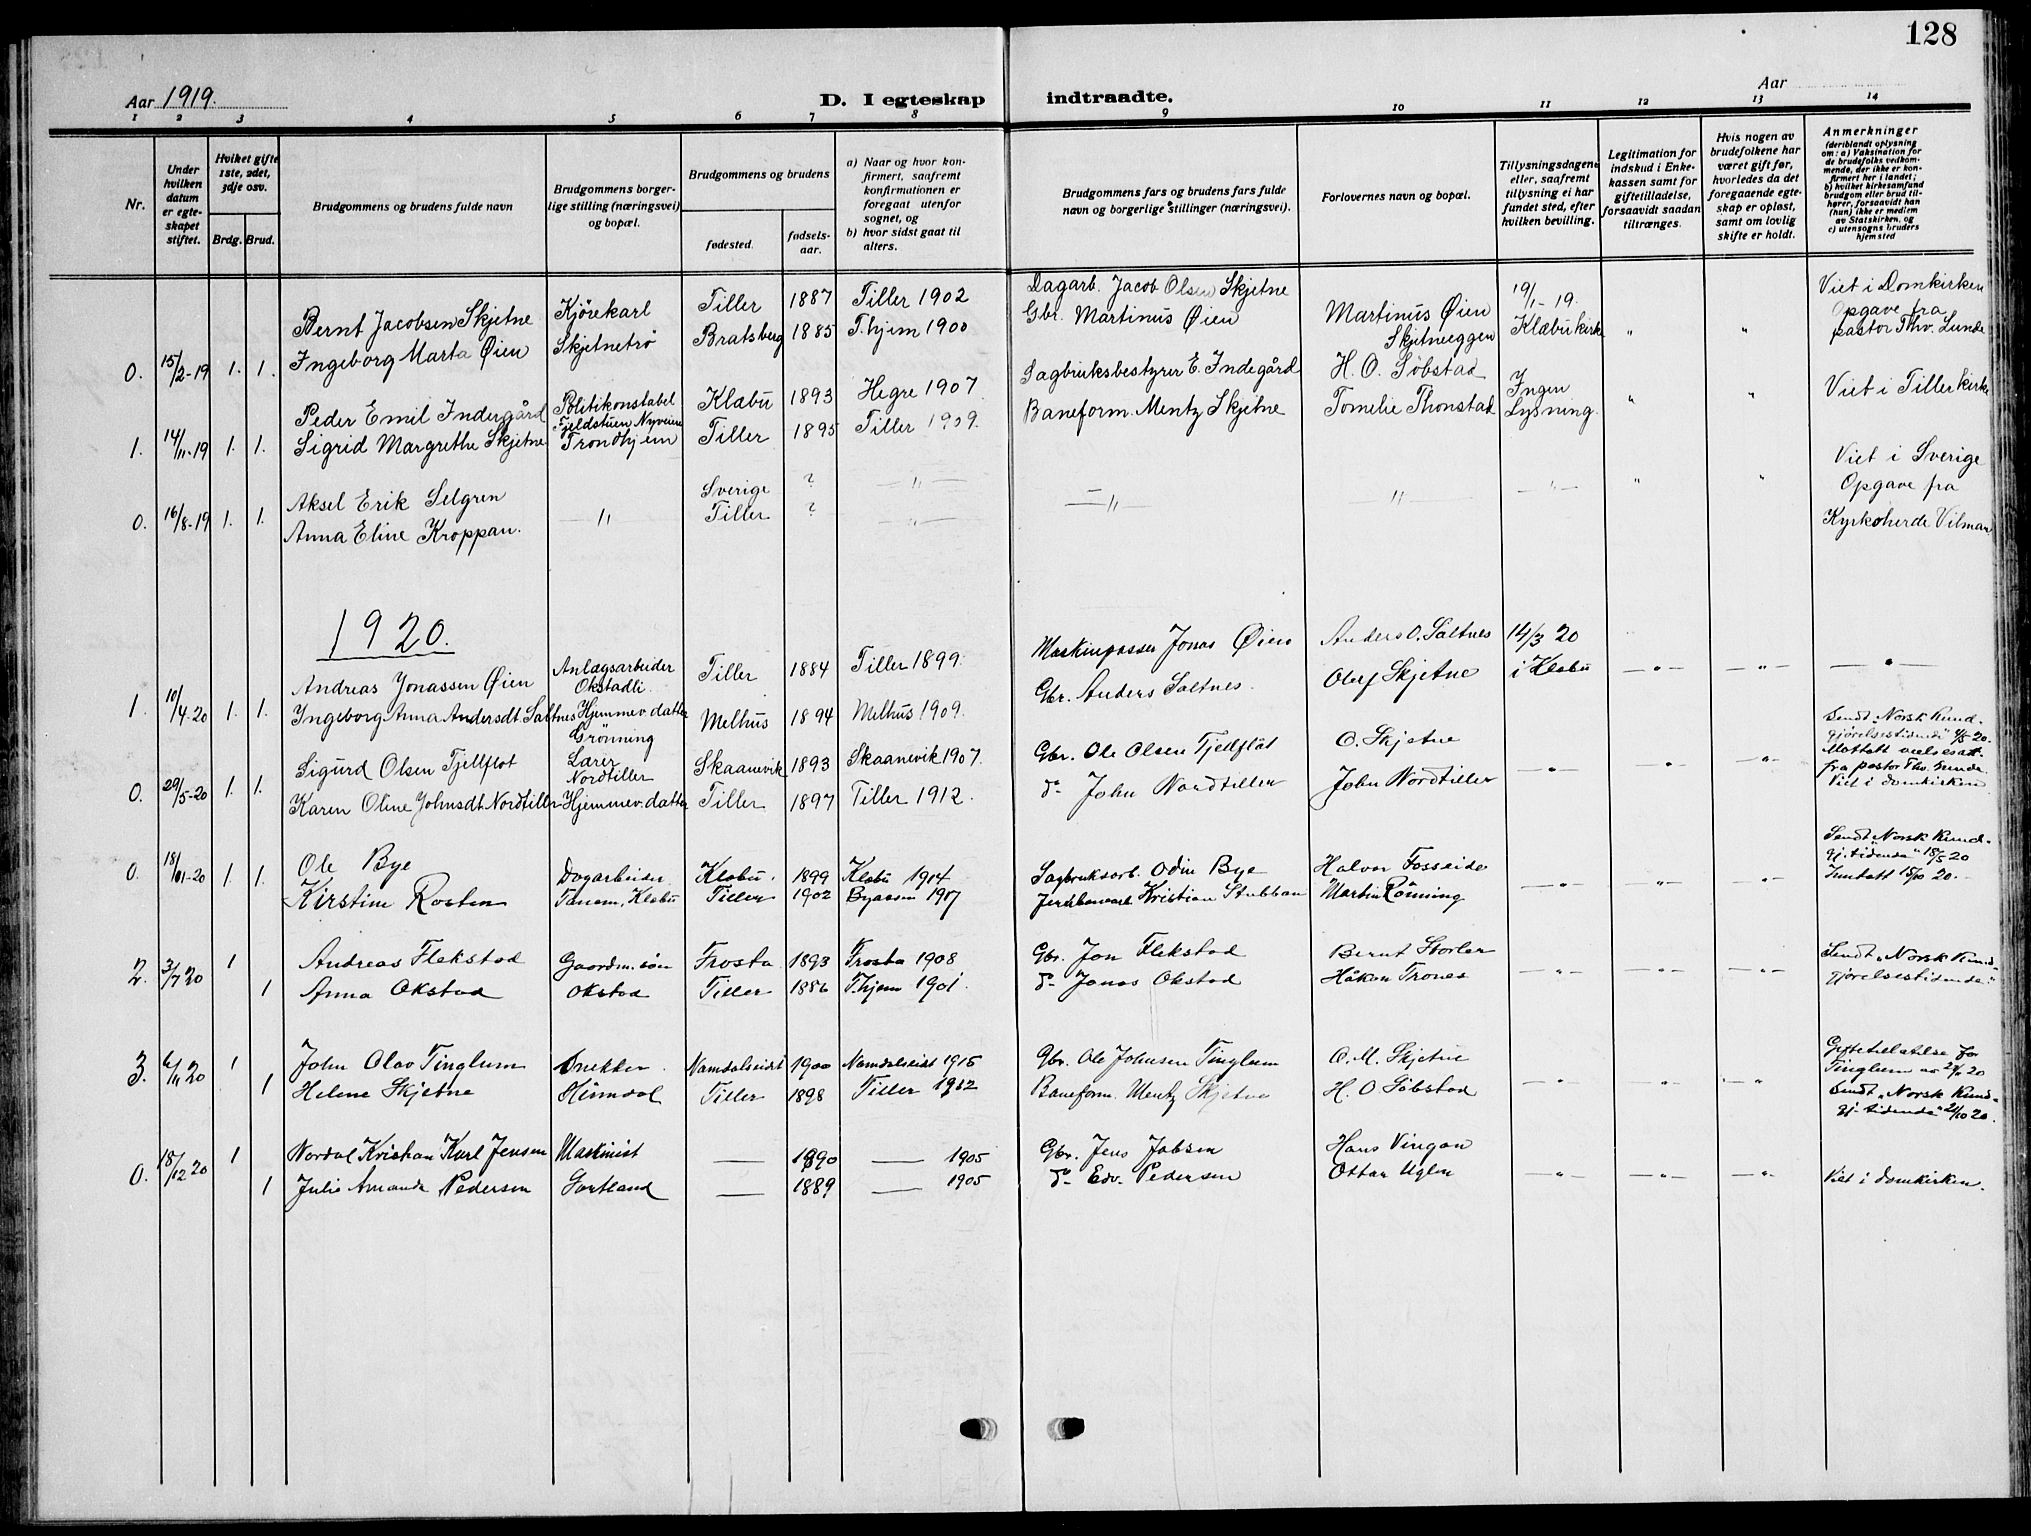 128
Aar 1919.
D. I egteskap indtraadte.
Aar
1 2 3 4 5 6 7 8 9 10 11 12 13 14
Nr.
Under hvilken datum er egteskapet stiftet.
Hvilket gifte 1ste, 2det, 3dje osv.
Brdg. Brud.
Brudgommens og brudens fulde navn
Brudgommens borgerlige stilling (næringsvei) og bopæl.
Brudgommens og brudens
fødested.
fødselsaar.
a) Naar og hvor konfirmert, saafremt konfirmationen er foregaat utenfor sognet, og
b) hvor sidst gaat til alters.
Brudgommens fars og brudens fars fulde navn og borgerlige stillinger (næringsvei).
Forlovernes navn og bopæl.
Tillysningsdagene eller, saafremt tillysning ei har fundet sted, efter hvilken bevilling.
Legitimation for indskud i Enkekassen samt for giftetilladelse, forsaavidt saadan tiltrænges.
Hvis nogen av brudefolkene har været gift før, hvorledes da det foregaaende egteskap er opløst, samt om lovlig skifte er holdt.
Anmerkninger (deriblandt oplysning om: a) Vaksination for de brudefolks vedkommende, der ikke er konfirmert her i landet; b) hvilket kirkesamfund brudgom eller brud tilhører, forsaavidt han (hun) ikke er medlem av Statskirken, og c) utensogns bruders hjemsted
Bernt Jacobsen Skjetne Kjørekarl Tiller 1887 Tiller 1902 Dagarb. Jacob Olsen Skjetne Martinus Øien 19/1-19. Viet i Domkirken
0. 15/2-19 1. 1. Ingeborg Marta Øien Skjetnetrø Bratsberg 1885 T.hjem 1900 Gbr. Martinus Øien Skjetneeggen Klæbu kirke " " Opgave fra pastor Thv. Lunde
Peder Emil Indergård Politikonstabel Klæbu 1893 Hegre 1907 Sagbruksbestyrer E. Indegård H. O. Søbstad Ingen
Fjeldstuen Nyveien
1. 14/11-19 1. 1. Sigrid Margrethe Skjetne Trondhjem Tiller 1895 Tiller 1909. Baneform. Mentz Skjetne Tomelie Thonstad Lysning " " Viet i Tiller kirke
Aksel Erik Selgren Sverige ? — " — Viet i Sverige
0. 16/8-19 1. 1. Anna Eline Kroppan. — " Tiller ? — " — — " — — " — — " — " " Opgave fra Kyrkoherde Vilman
1920.
Andreas Jonassen Øien Anlægsarbeider Okstadli Tiller 1884 Tiller 1899. Maskinpasser Jonas Øien Anders O. Saltnes 14/3 20
1. 10/4-20 1. 1. Ingeborg Anna Andersdt. Saltnes Hjemmev. datter Grönning Melhus 1894 Melhus 1909. Gbr. Anders Saltnes. Olaf Skjetne i Klæbu — " — — " — — " —
Sigurd Olsen Tjellflot Lærer Nordtiller Skaanevik 1893 Skaanevik 1907. Gbr. Ole Olsen Tjedflåt O. Skjetne Sendt "Norsk Kundgjørelsestidende" 4/5 20.
0. 29/5-20 1. 1. Karen Oline Johnsdt. Nordtiller Hjemmev. datter Tiller 1897 Tiller 1912. do John Nordtiller John Nordtiller — " — — " — — " — Mottatt vielsesatt. fra pastor Thv. Lunde. Viet i domkirken
0. 18/ -20 1. 1. Ole Bye Dagarbeider Klæbu. 1899 Klæbu 1914 Sagbruksarb. Odin Bye Halvor Fosseide Sendt "Norsk Kundgj. tidende" 18/5 20
Kirstine Rosten Tanem, Klæbu Tiller 1902 Byaasen 1917 Kristian Stubban Martin Rönning — " — — " — — " — Inntatt 15/10 20.
2. 3/7 20 1 Andreas Flekstad Gaardm. søn Frosta 1893 Frosta 1908 Gbr. Jon Flekstad Bernt Storler Sendt "Norsk Kundgjörelsestidende"
1 Anna Okstad Okstad Tiller 1886 T.hjem 1901. do Jonas Okstad Håkon Trones — " — — " — — " —
3. 6/11 20 1 John Olav Tinglum Snekker. Namdalseidet 1900 Namdalseidet 1915 Gbr. Ole Johnsen Tinglum O. M. Skjetne Giftetilatelse for Tinglum av 20
1 Helene Skjetne Heimdal Tiller 1898 Tiller 1912 Baneform. Mentz Skjetne H. O. Søbstad — " — — " — — " — Sendt "Norsk Kundgj. tidende" 21/10 20.
0. 18/12 20 1 Nordal Kristian Karl Jensen Maskinist — 1890 — 1905 Gbr. Jens Jobsen Hans Vingan
1 Julie Amanda Pedersen Sortland — 1889 — 1905 do Edv. Pedersen Ottar Uglen — " — — " — — " — Viet i domkirken.